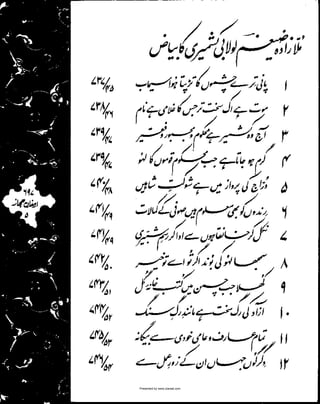 ملا زادہ ضیغم لولابی کشمیری کا بیاض
۱ پانی ترے چشموں کا تڑپتا ہوا سیماب ۷۳۷/۴۵
۲ موت ہے اک سخت تر جس کا غلامی ہے نام ۷۳۸/۴۶
۳ آج وہ کشمیر ہے محکوم و مجبور و فقیر ۷۳۹/۴۷
۴ گرم ہو جاتا ہے جب محکوم قوموں کا لہو ۷۳۹/۴۷
۵ دراج کی پرواز میں ہے شوکت شاہیں ۷۴۰/۴۸
۶ رندوں کو بھی معلوم ہیں صوفی کے کمالات ۷۴۱/۴۹
۷ نکل کر خانقاہوں سے ادا کر رسم شبیری ۷۴۱/۴۹
۸ سمجھا لہو کی بوند اگر تو اسے تو خیر ۷۴۲/۵۰
۹ کھلا جب چمن میں کتب خانۂ گل ۷۴۳/۵۱
۱۰ آزاد کی رگ سخت ہے مانند رگ سنگ ۷۴۴/۵۲
۱۱ تمام عارف و عامی خودی سے بیگانہ ۷۴۵/۵۳
۱۲ دگرگوں جہاں ان کے زور عمل سے ۷۴۶/۵۴
ارمغان حجاز
۵